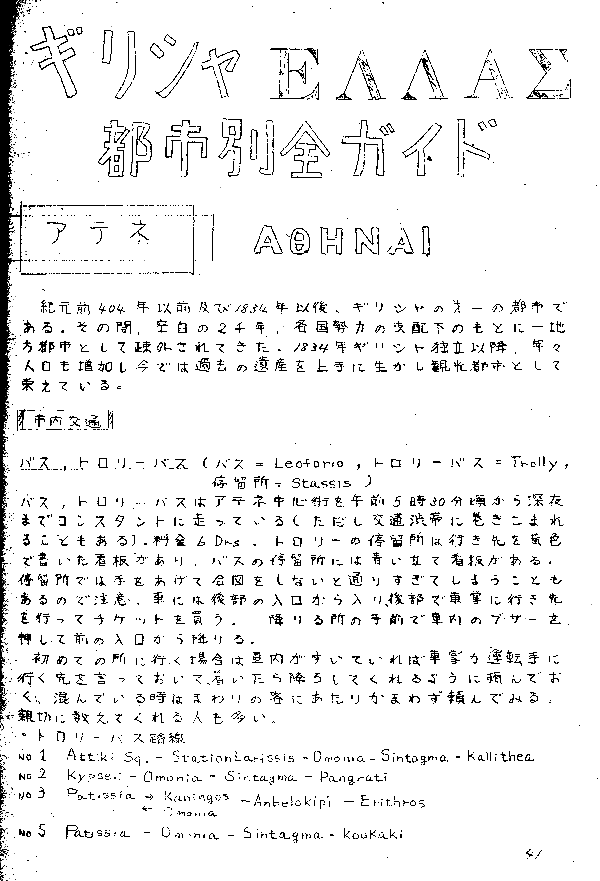 ギリシャ ΕΛΛΑΣ
都市別全ガイド
アテネ ΑΘΗΝΑΙ
紀元前404年以前及び1834年以後、ギリシャの第一の都市で
ある。その間、空白の2千年、各国勢力の支配下のもとに一地
方都市として疎外されてきた。1834年ギリシャ独立以降、年々
人口も増加し今では過去の遺産を上手に生かし観光都市として
栄えている。
市内交通
バス，トロリーバス（バス＝Leoforio，トロリーバス＝Trolly，
停留所＝Stassis）
バス，トロリーバスはアテネ中心街を午前5時30分頃から深夜
までコンスタントに走っている（ただし交通渋帯に巻きこまれ
ることもある）。料金6Drs. トロリーの停留所は行き先を黄色
で書いた看板があり、バスの停留所には青い立て看板がある。
停留所では手をあげて合図をしないと通りすぎてしまうことも
あるので注意。車には後部の入口から入り、後部で車掌に行き先
を行ってチケットを買う。 降りる所の手前で車内のブザーを
押して前の入口から降りる。
初めての所に行く場合は車内がすいていれば車掌か運転手に
行く先を言っておいて、着いたら降ろしてくれるように頼んでお
く。混んでいる時はまわりの客にあたりかまわず頼んでみる。
親切に教えてくれる人も多い。
・トロリーバス路線
No 1 Attiki Sq. - Station Larissis - Omonia - Sintagma - Kallithea
No 2 Kypseli - Omonia - Sintagma - Pangrati
No 3 Patissia → Kaningos - Anbelokipi - Erithros
← Omonia
No 5 Patissia - Omonia - Sintagma - Koukaki
41